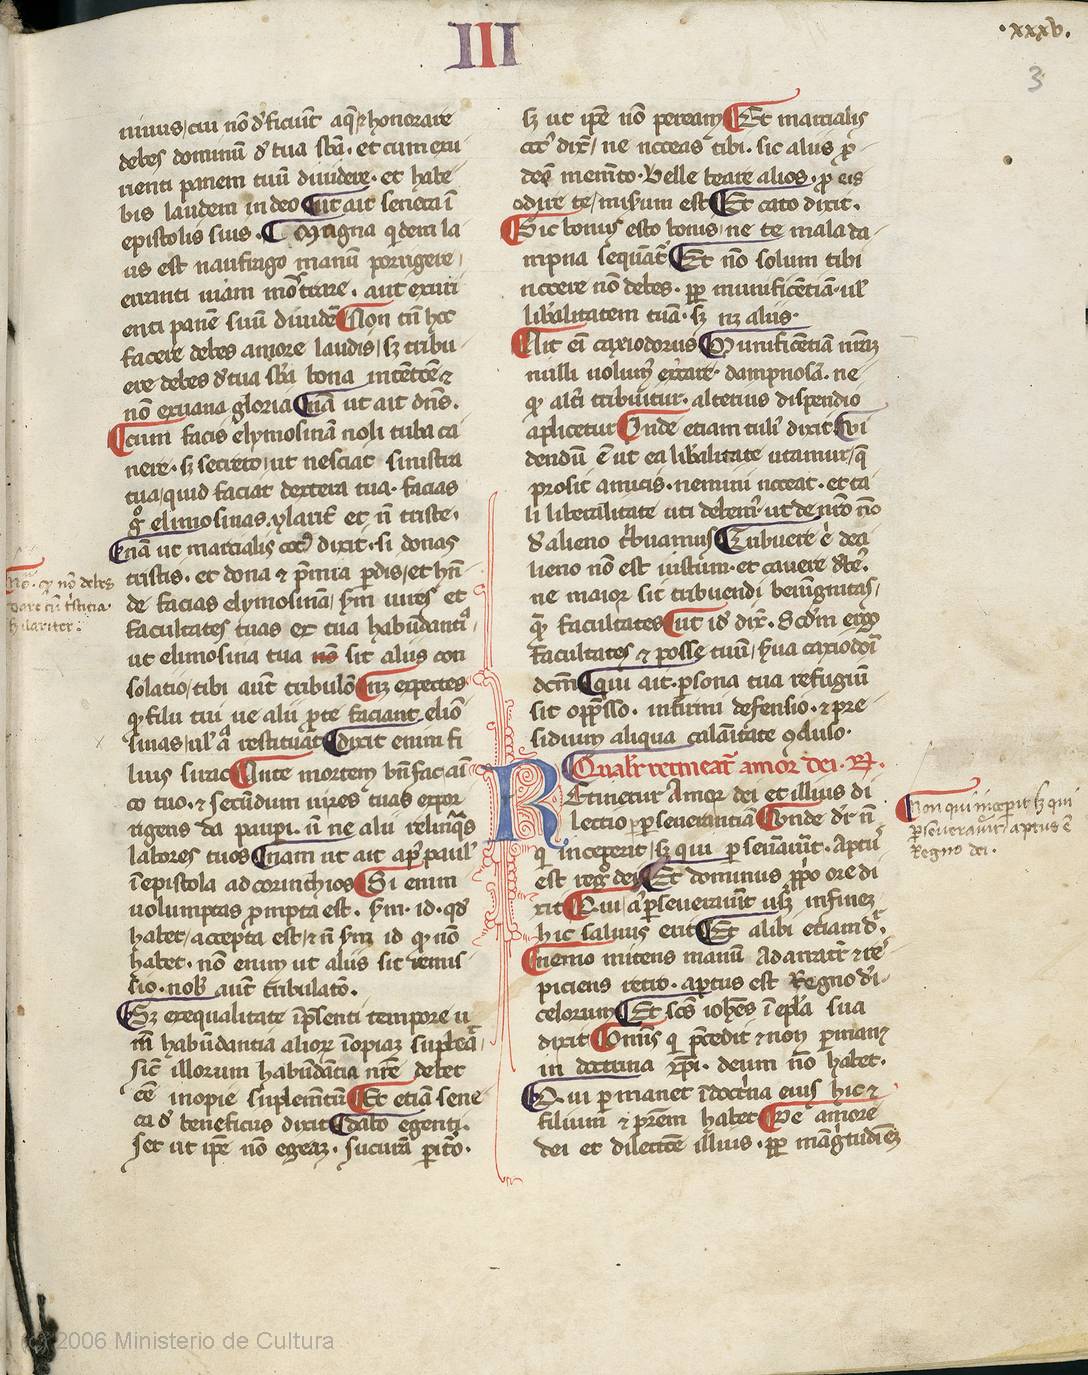 III
.xxxv.
3
debes dominū d' tua sbā. et cum eru
rienti panem tuū diuidere. et habe
bis laudem in deo ut ait seneca ī
epistolis suis. Magna qdem la
us est naufrago manū porrigere,
erranti uiam mōstrare. aut exuri
enti panē suū diuidē Non tn̄ hoc
facere debes amore laudis, sz tribu
ere debes d' tua sbā bona intētōē ⁊
nō exuana gloria Nā ut ait dn̄s.
cum facis elymosinā noli tuba ca
nere. sz secreto, ut nesciat sinistra
tua, quid faciat dextera tua. facias
g° elimosinas. ylarit' et n̄ triste.
nā ut marcialis coc' dixit. si donas
tristis. et dona ⁊ p̄mia p̄dis, et hn̄
de facias elymosinā, s'm uires et
facultates tuas et tua habūdanti'ᵃ
ut elimosina tua nō sit alus con
solatio, tibi aūt tribulō Nz expectes
q' filii tui ue alii p te faciant elīo
sinas, ul' ā restituāt dixit enim fi
lius sirac Ante mortem bn̄fac ai
co tuo. ⁊ secūdum uires tuas expor
rigens da paupi. n̄ ne alii relinq̄s
labores tuos Nam ut ait ap' paul'
ī epistola ad corinthios Si enim
uolumptas p̄mpta est. s'm. id. qd'
habet, accepta est, ⁊ n̄ s'm id q' nō
habet. nō enim ut alus sit remis
sio. nob' aūt tribulatō.
Sz ex equalitate ī p̄senti tempore u
r̄m habūdantia alior' īopiaz supleā,
sic' illorum habūdātia nr̄e debet
cē inopie suplemtū Et etiā sene
ca d' beneficus dixit dabo egenti.
set ut ip̄e nō egeaz. sucurā p̄ito.
No. q' nō debes
dare cū tristicia.
s hilariter.
sz ut ip̄e nō peream Et marcialis
coc' dix̄, ne noceas tibi. sic alus p
dee mem̄to. Velle beare alios. p eis
odire te, misum est Et cato dixit.
Sic bonus esto bonis, ne te mala da
mpna sequāt' Et nō solum tibi
nocere nō debes. pp munificētiā. ul'
lib'alitatem tuā. sz nz alus.
Ait ei caxiodorus Munificētiā nrāz
nulli uolum' extare dampnosā. ne
q' alt'i tribuitur. alterius dispendio
aplicetur Unde etiam tuli' dixit vi
dendū ē ut ea lib'alitate utamur, q̄
prosit amicis. nemini noceat. et ta
li liberalitate uti debem'. ut de nr̄o nō
d' alieno t'buamus Tribuere e de a
lieno nō est iustum. et cauere d'te.
ne maior sit tribuendi benignitas,
q̄ facultates ut id' dix̄. Scd'm ergo
facultates ⁊ posse tuū, iuua caxiodoī
dcm̄ qui ait. p̄sona tua refugiū
sit opp̄sso. infirmi defensio. ⁊ pre
sidium aliqua calāitate oduso.
Qualr' retineat' amor dei. R.
REtinetur Amor dei et illius di
lectio p p seuerantiā Unde dr̄ n̄
q' inceperit, sz qui p seuāuit. aptu'
est reg° dei Et dominus pp̄o ore di
xit Qui a' p̄seuerauit usz in finez
hic saluus erit Et alibi etiam d.'
nemo mitens manū Ad aratr̄ ⁊ re
piciens retro. aptus est Regno d'i.
celorum Et sc̄s ioh̄es ī epl'a sua
dixit Omis q' p̄cedit ⁊ non p̄manz
in doctrina xp̄i. deum nō habet.
Qui p̄ manet ī doct'na eius hic ⁊
filium ⁊ p̄rem habet De amore
dei et dilectōe illius. pp mag'tudiēz
Non qui inceperit sz qui
p̄seuerauit, aptus ē
Regno dei.
(c) 2006 Ministerio de Cultura